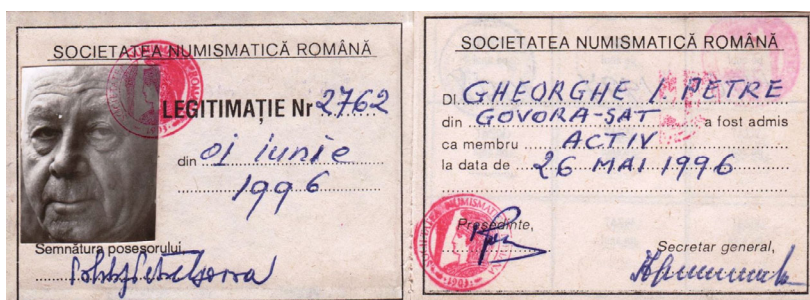 SOCIETATEA NUMISMATICĂ ROMÂNĂ
LEGITIMAȚIE Nr 2762
din 01 iunie
1996
Semnătura posesorului
SOCIETATEA NUMISMATICĂ ROMÂNĂ
Dl. GHEORGHE I. PETRE
din GOVORA-SAT a fost admis
ca membru ACTIV
la data de 26 MAI 1996
Președinte,
Secretar general,